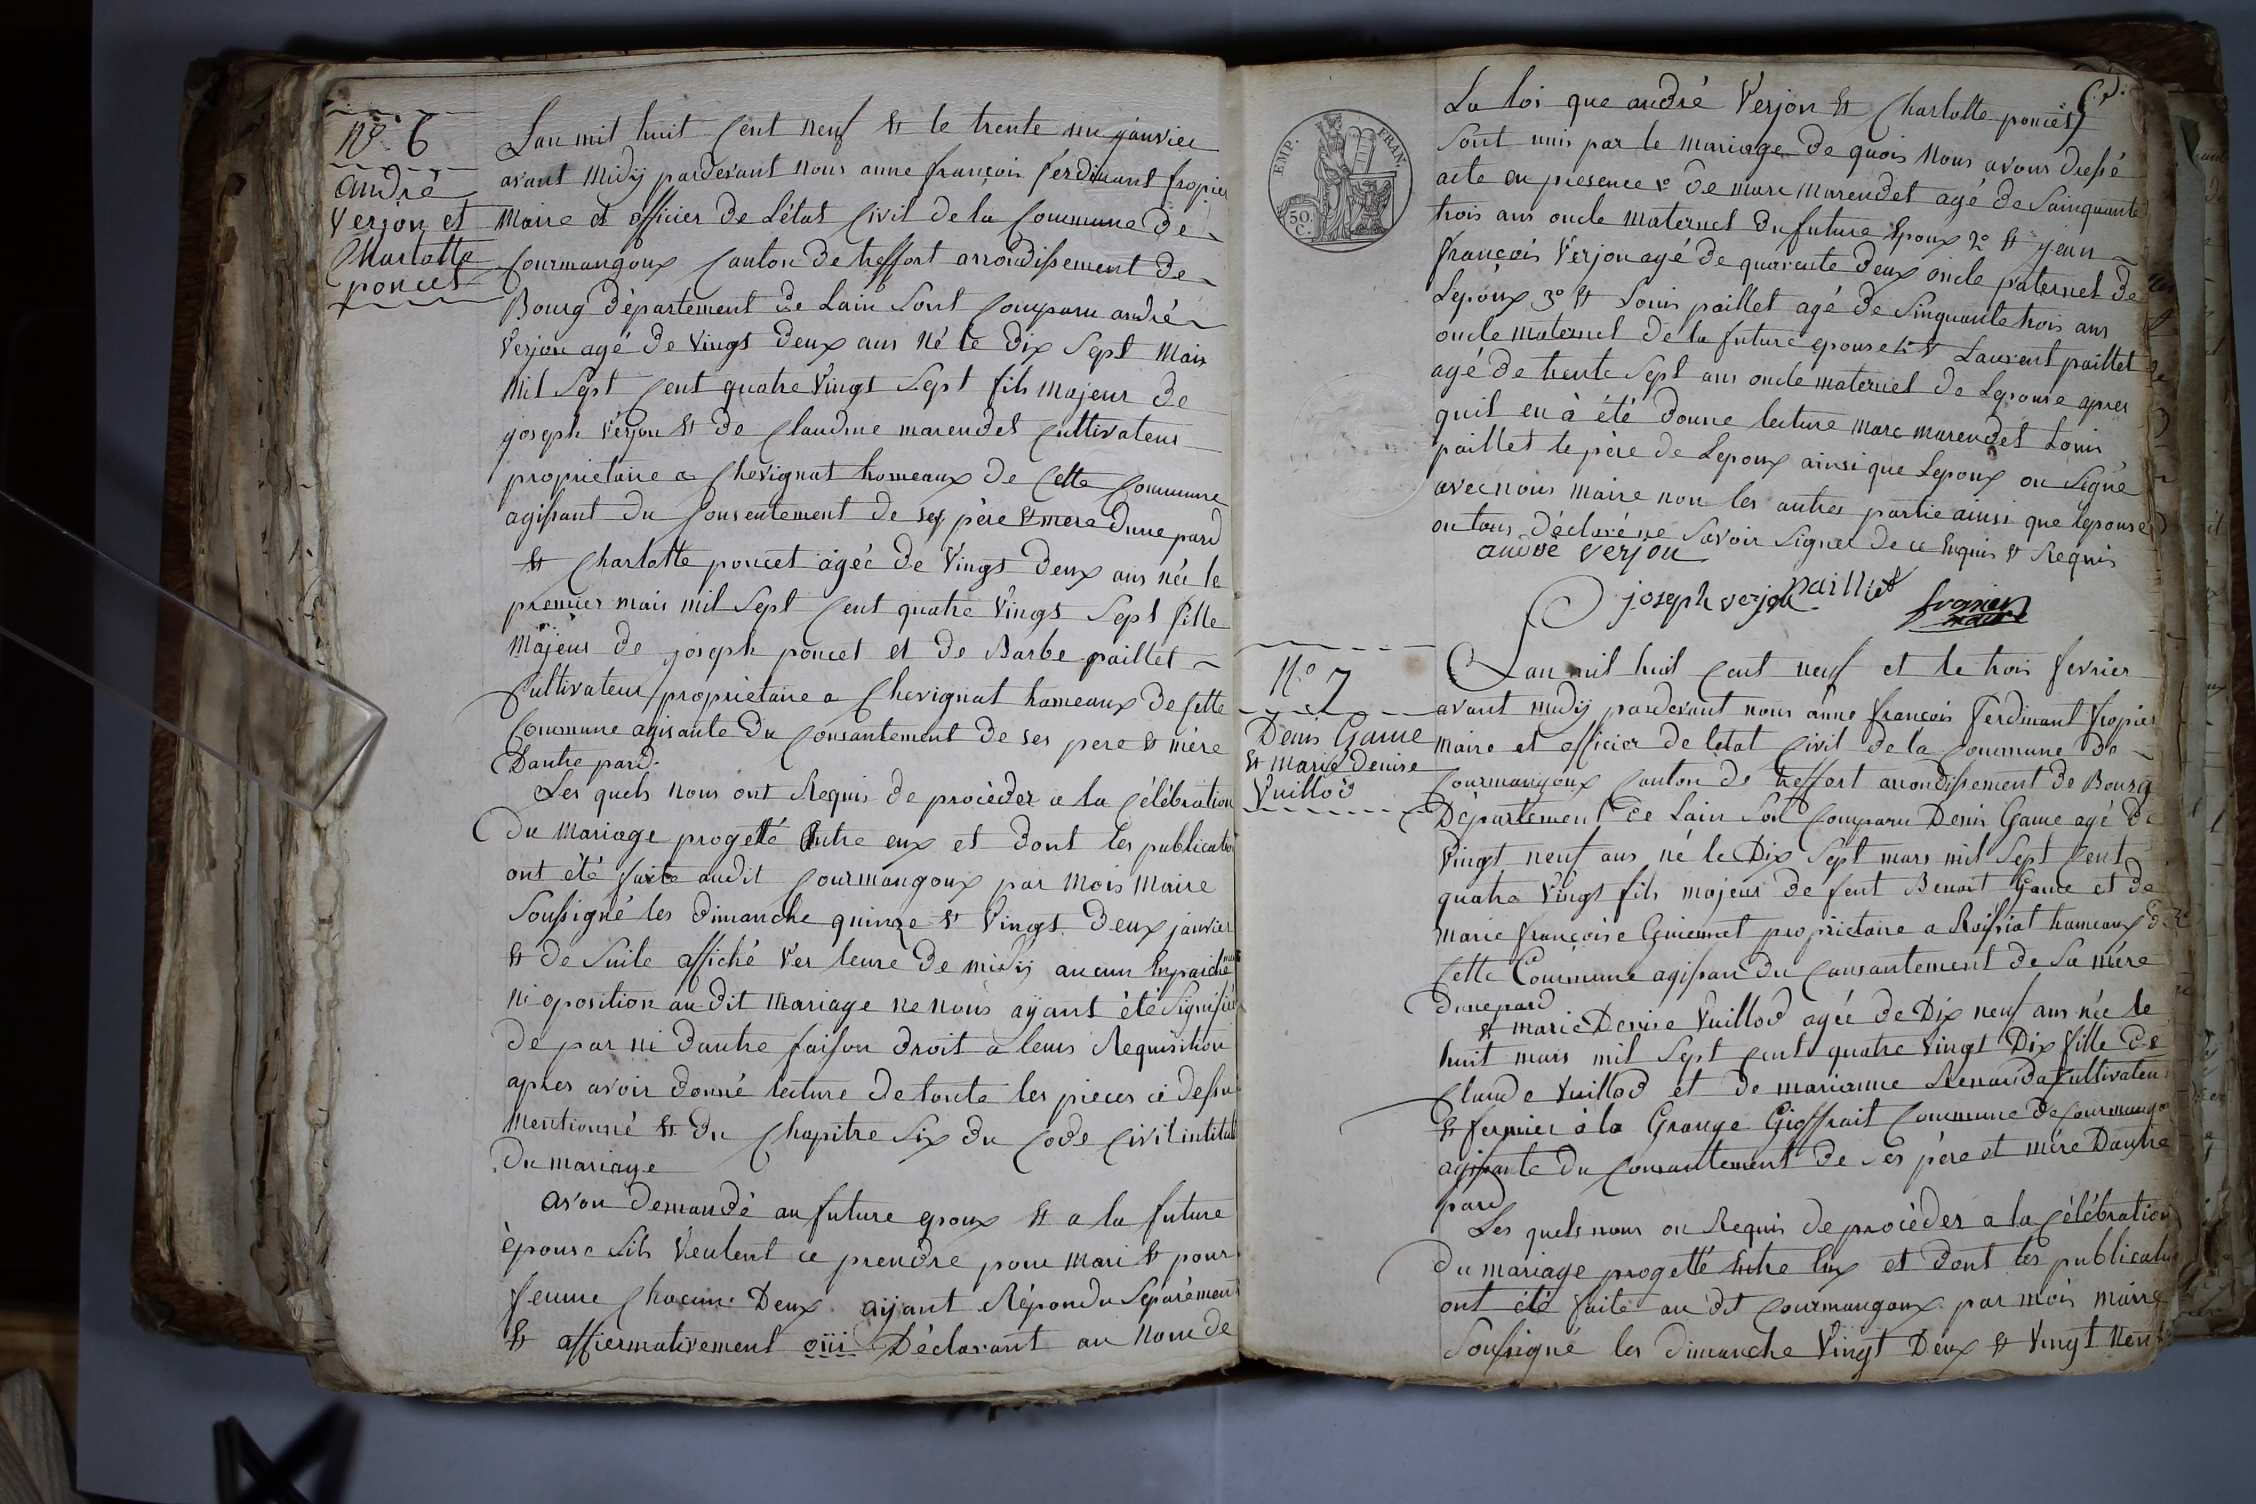 N.º 6
andré
Verjon et
Charlotte
poncet
Lan mil huit Cent neuf et le trente un janvier
avant Midÿ pardevant nous anne françois ferdinant fropier
Maire et officier de L'état Civil de la Commune de
Courmangoux Canton de treffort arrondissement de
Bourg département de Lain Sont Comparu andré
Verjon agé de Vingt deux ans Né le Dix Sept Mars
Mil Sept Cent quatre Vingt Sept fils Majeur de
joseph Verjon et de Claudine marendet Cultivateur
proprietaire a Chevignat homeaux de Cette Commune
agissant du Consentement de ses père et mere Dune pard
et Charlotte poncet agéé de Vingt deux ans née le
premier mais mil Sept Cent quatre Vingt Sept fille
Majeur de joseph poncet et de Barbe paillet
Cultivateur proprietaire a Chevignat homeaux de Cette
Commune agisante du Consantement de ses pere et mère
Dautre pard.
Les quels nous ont Requis de procèder a la Célébration
du Mariage progetté Entre eux et dont les publication
ont été faite audit Courmangoux par Mois Maire
Soussigné les dimanche quinze et Vingt deux janvier
et de Suite affiché Ver leure de midÿ aucun Enpaichement
ni oposition au dit Mariage ne nous aÿant été Signifiée
de par ni dautre faison droit a leurs Requisition
apres avoir donné lecture de toute les pièces ci dessu
Mentionné et du Chapitre Six du Code Civil intitulé
du mariage
avon demandé au future epoux et a la future
épouse Sils Veulent ce prendre pour Mari et pour
femme Chacun Deux aÿant Répondu Séparément
et affiermativement oüi Déclarant au Nom de
EMP. FRAN.
50.
C.
La loi que andré Verjon et Charlotte poncet
Sont unis par le Mariage de quois Nous avons dressé
acte en presence de marc Marendet agé de Sainquante
trois ans oncle maternel du future Epoux 2º et jean
françois Verjon agé de quarente deux oncle paternel de
Lepoux 3º et Louis paillet agé de Sinquante trois ans
oncle maternel de la future epouse 4º et Laurent paillet
agé de trente Sept ans oncle maternel de Lepouse apres
quil en à été donne lecture Marc marendet Louis
paillet le père de Lepoux ainsi que Lepoux on Signé
avec nous maire non les autres partie ainsi que lepouse
on tous déclaré ne Savoir Signer de ce Enquis et Requis
andré verjon
joseph verjon paillet fropier
maire
N.º 7
Denis Game
et marie denise
Vuillod
Lan mil huit Cent neuf et le trois fevrier
avant midÿ pardevant nous anne françois ferdinant fropier
maire et officier de l'état Civil de la Commune de
Courmangoux Canton de treffort arrondissement de Bourg
Département de Lain Son Comparu Denis Game agé de
Vingt neuf ans né le Dix Sept mars mil Sept Cent
quatre Vingt fils majeur de feut Benoit Game et de
marie françoise Guicmet proprietaire a Roissiat hameaux de
Cette Commune agissan du Consantement de Sa mére
dune pard
et marie Denise Vuillod agée de Dix neuf ans née le
huit mars mil Sept Cent quatre Vingt Dix fille de
Claude Vuillod et de marianne Renauda Cultivateur
et fermier à la Grange Gioffrait Commune de Courmangou
agissante du Consantement de Ses père et mére Dautre
pard
Les quels nous on Requis de procèder a la Célébration
du mariage progetté Entre Eux et dont les publication
ont été faite au dt Courmangoux par mois maire
Soussigné les dimanche Vingt Deux et Vingt Neuf